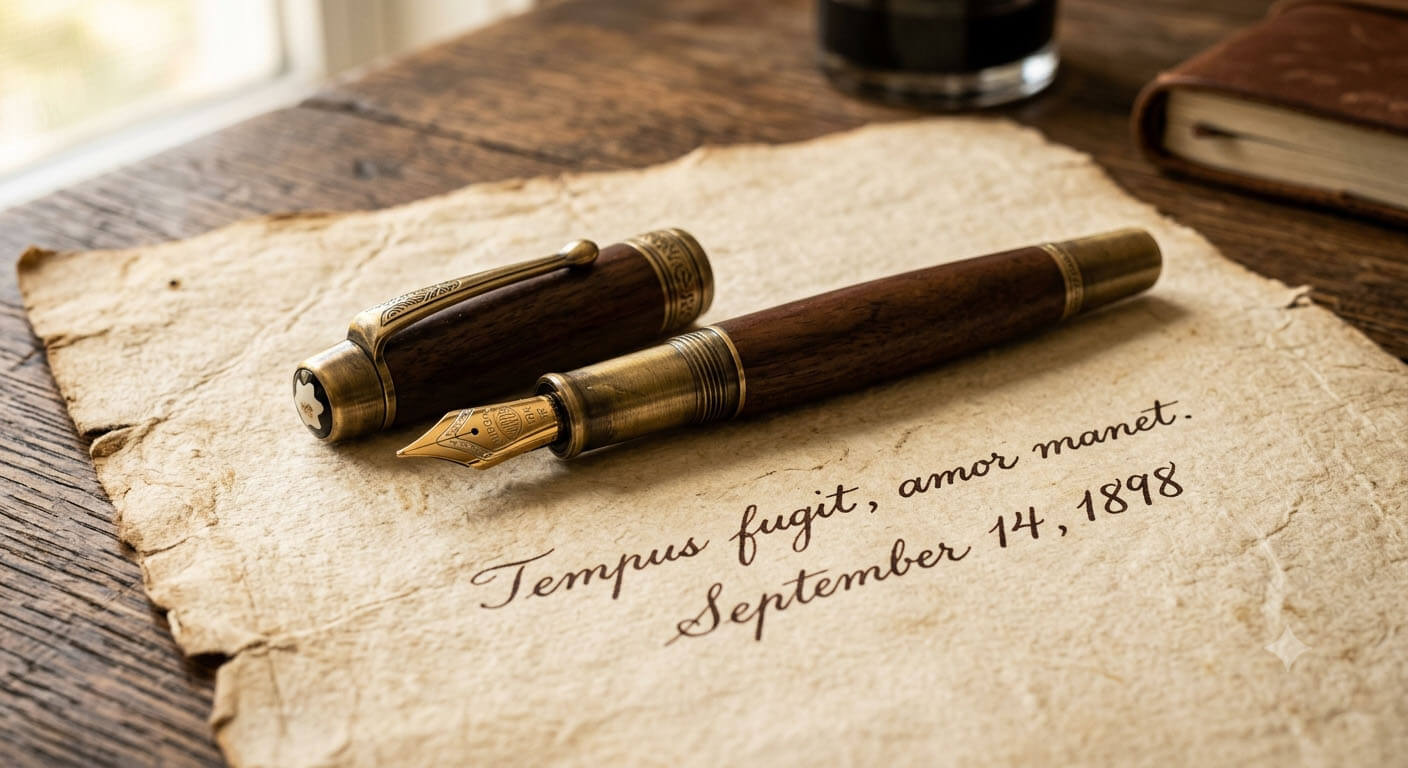 Tempus fugit, amor manet.
September 14, 1898